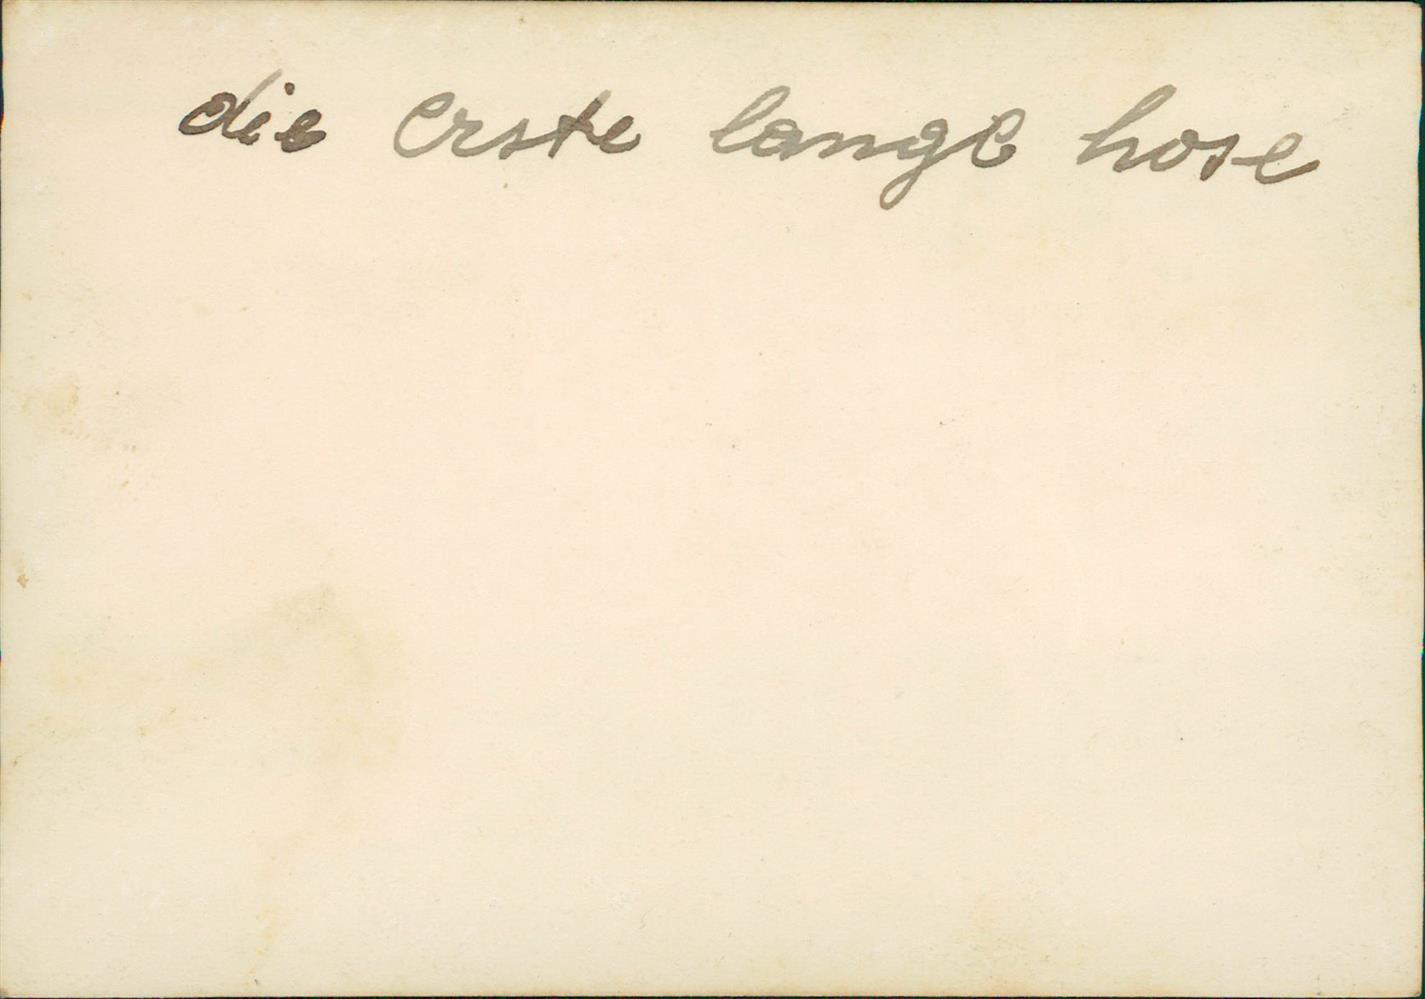 die erste lange hose